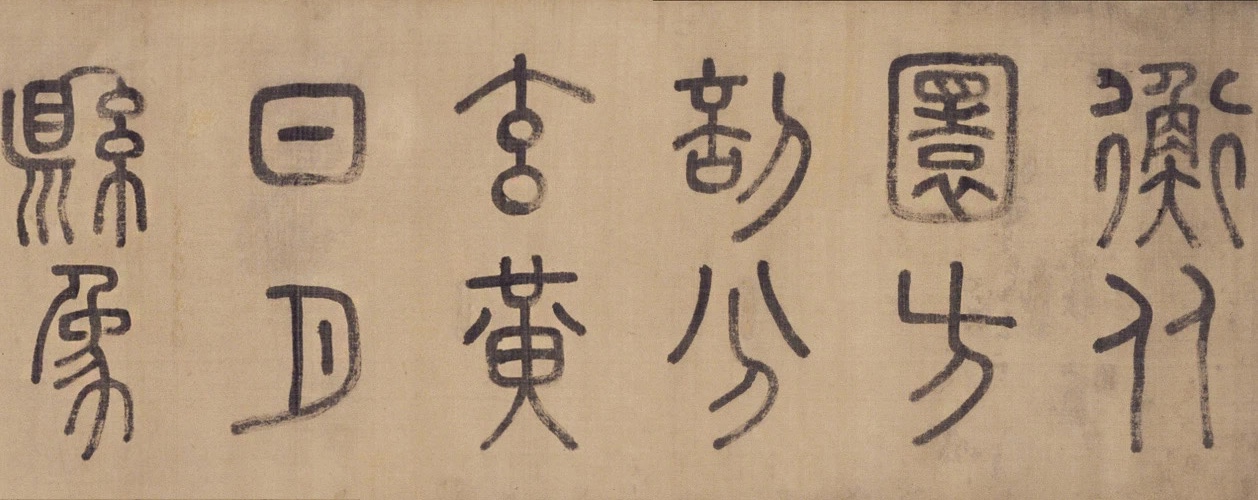 衡从
圜方
剖分
玄黃
日月
縣象